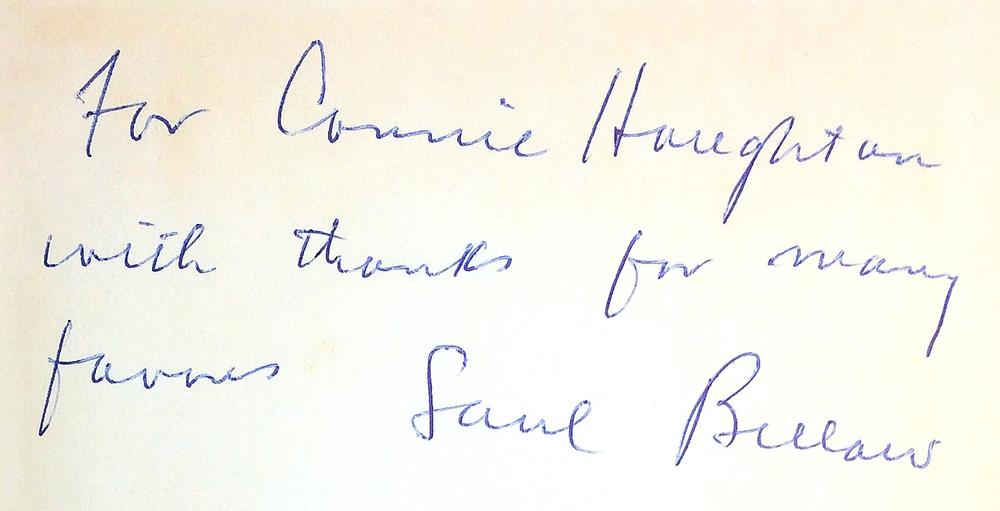 For Connie Houghton
with thanks for many
favors Saul Bellow